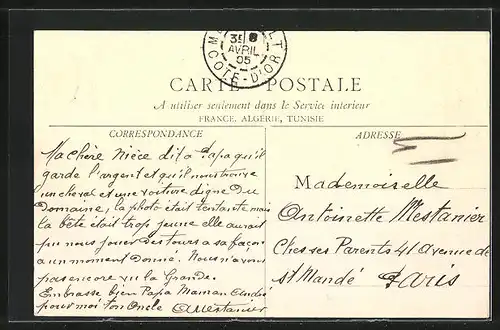 35 8
AVRIL
05
COTE-D'OR
CARTE POSTALE
A utiliser seulement dans le Service intérieur
FRANCE, ALGÉRIE, TUNISIE
CORRESPONDANCE
Ma chère Nièce dit a Papa qu'il
garde l'argent et qu'il nous trouve
un cheval et une voiture digne du
Domaine, la photo était tentante mais
la bête était trop jeune elle aurait
pu nous jouer des tours a sa façon
a un moment donné. Nous n'avons
pas encore vu la Grande.
Embrasse bien Papa Maman André
pour moi ton Oncle AMestanier
ADRESSE
Mademoiselle
Antoinette Mestanier
Ches ses Parents 41 avenue de
St Mandé Paris